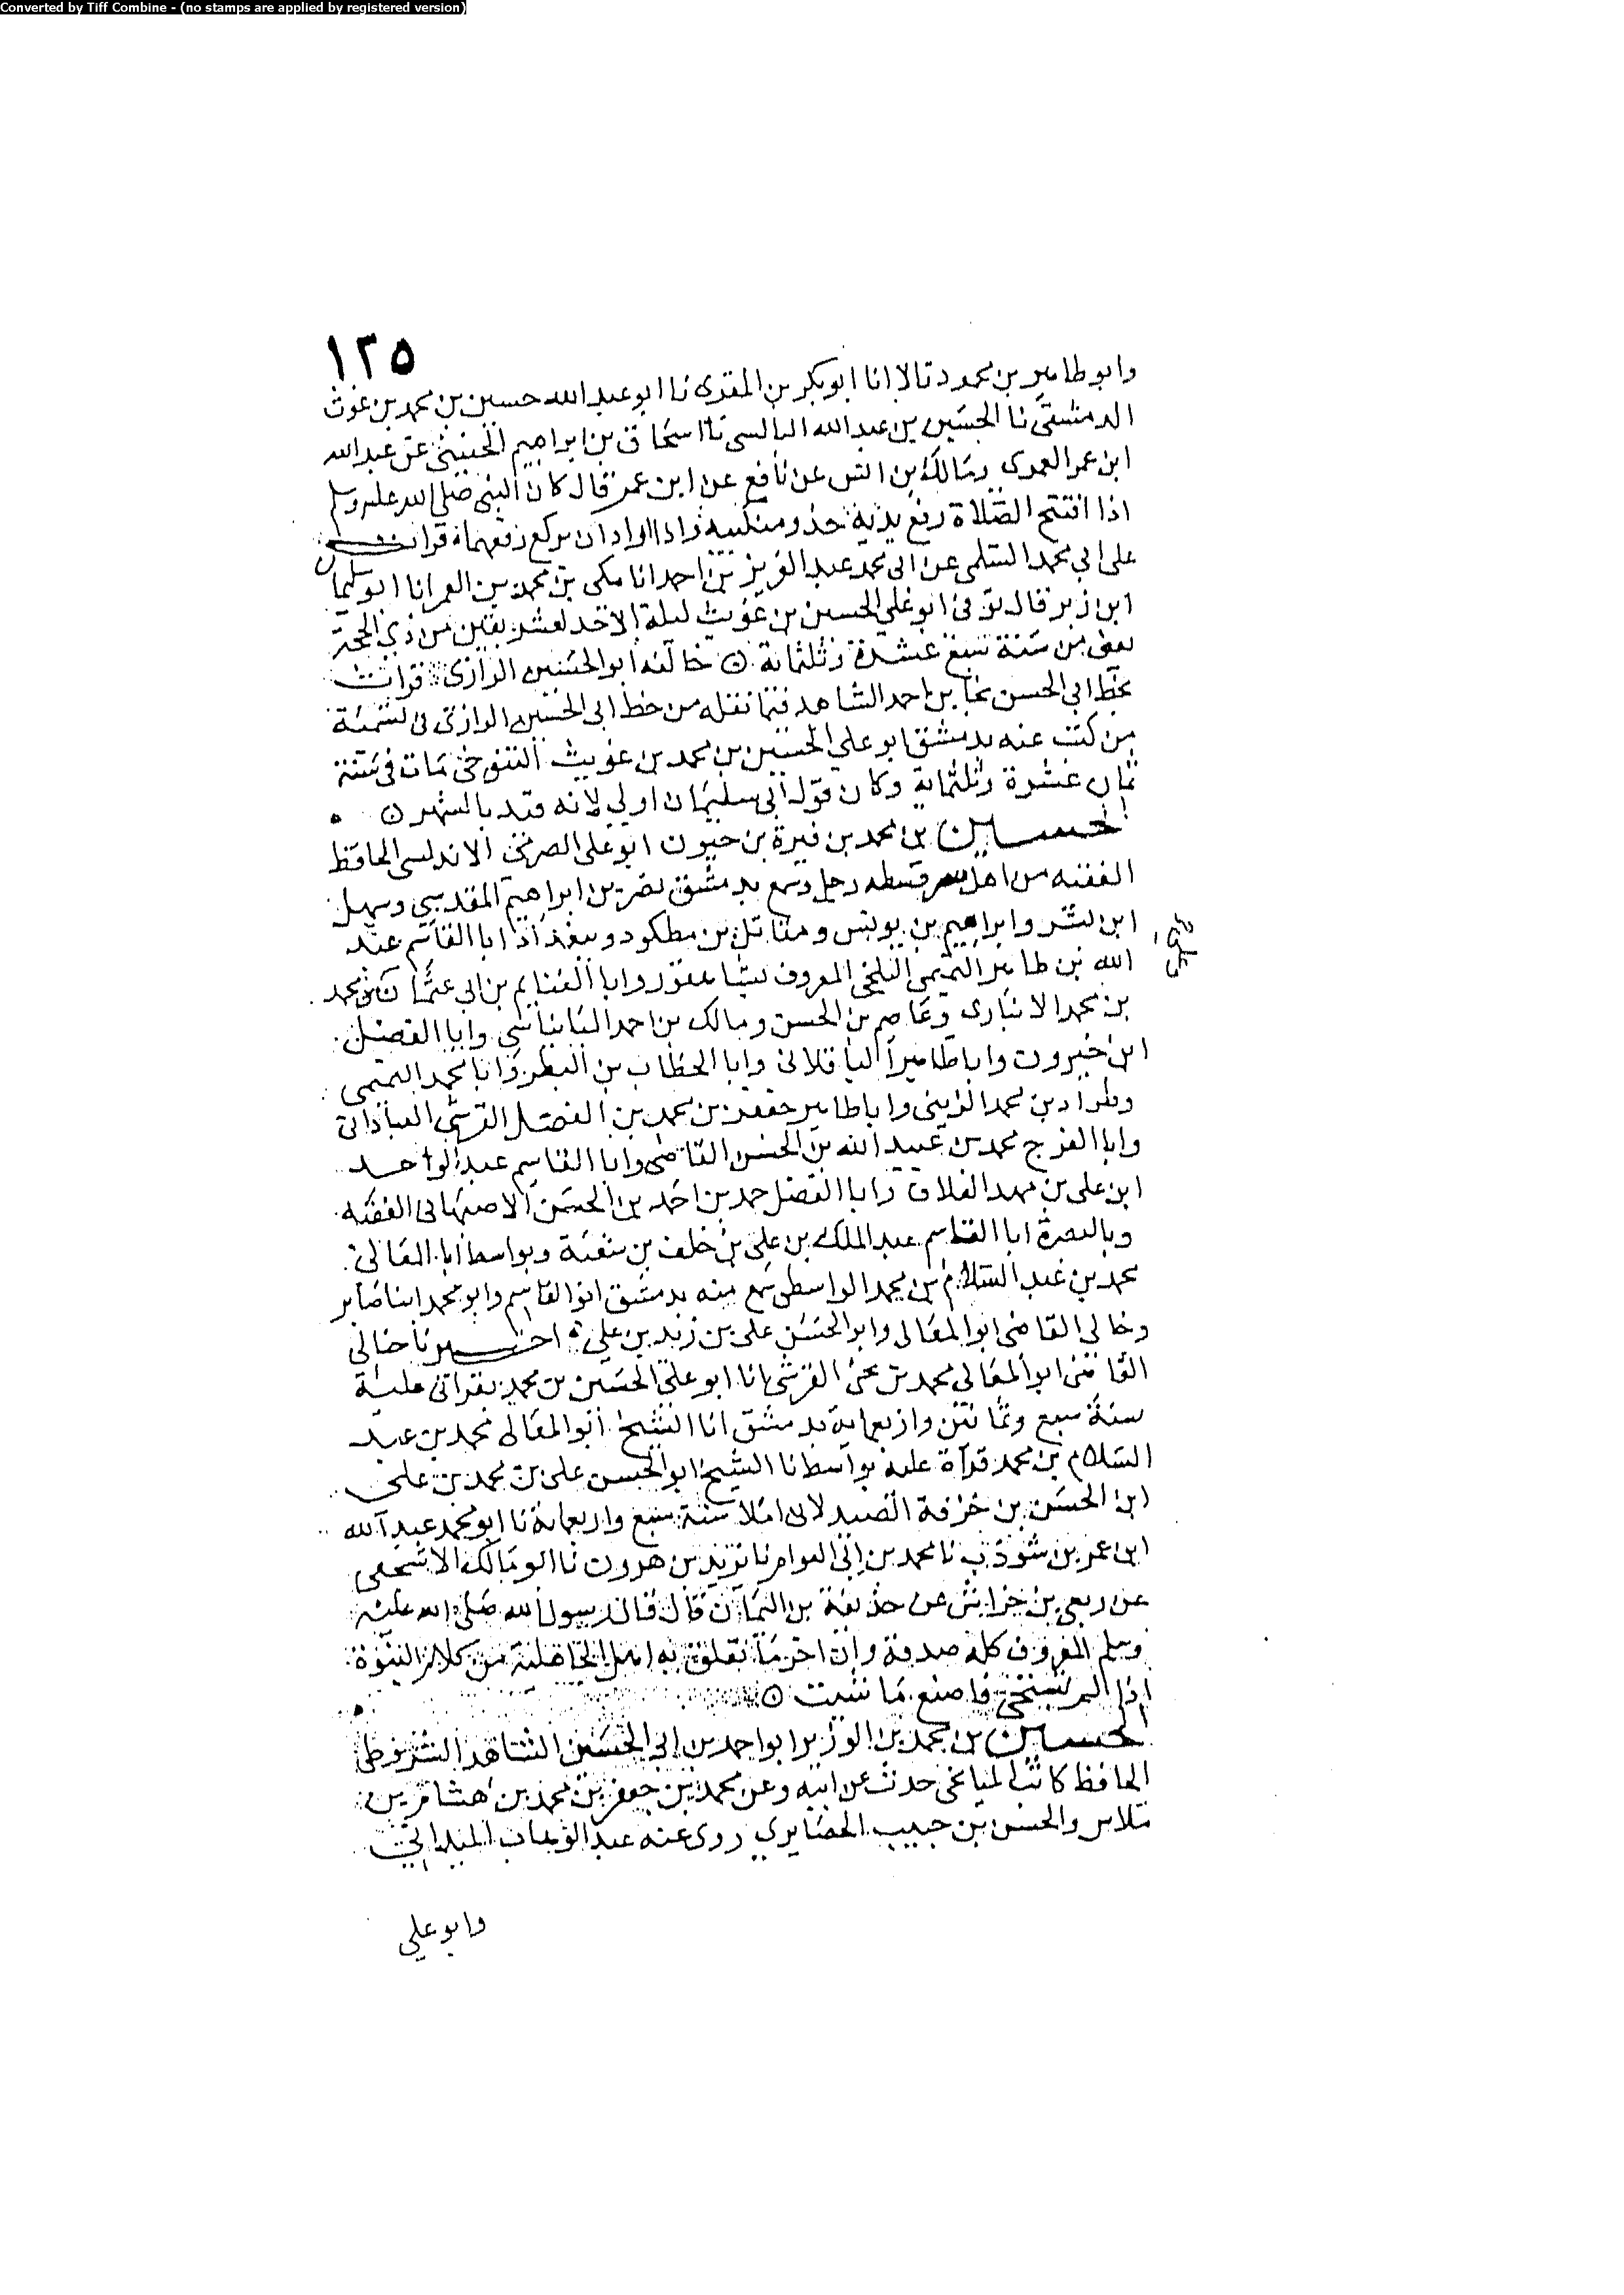 Converted by Tiff Combine - (no stamps are applied by registered version)
١٢٥
وابو طاهر بن محمود قالا انا ابو بكر بن المقرى نا ابو عبد الله حسين بن محمد بن غوث
الدمشقى نا الحسين بن عبد الله البالسى نا اسحاق بن ابراهيم الحنينى عن عبد الله
ابن عمر العمرى ومالك بن انس عن نافع عن ابن عمر قال كان النبى صلى الله عليه وسلم
اذا افتتح الصلاة رفع يديه حذو منكبيه واذا اراد ان يركع رفعهما قرات
على ابي محمد السلمى عن ابى محمد عبد العزيز بن احمد انا مكى بن محمد بن الغمر انا ابو سليمان
ابن زبر قال توفى ابو على الحسين بن غويث ليلة الاحد لعشر بقين من ذي الحجة
يعنى من سنة سبع عشرة وثلثماية خالفه ابو الحسين الرازى قرات
بخط ابي الحسن نجا بن احمد الشاهد فيما نقله من خط ابى الحسين الرازى فى تسمية
من كتب عنه بدمشق ابو علي الحسين بن محمد بن غويث التنوخى مات فى سنة
ثمان عشرة وثلثماية وكان قول ابى سليمان اولي لانه قيد بالشهر
الحسين بن محمد بن فيرة بن حيون ابو على الصدفى الاندلسى الحافظ
الفقيه من اهل سرقسطه رحل وسمع بدمشق نصر بن ابراهيم المقدسي وسهل
ابن بشر وابراهيم بن يونس ومقاتل بن مطكود وببغداد ابا القاسم عبد
الله بن طاهر التميمى البلخى المعروف بشاهفور وابا الغنايم بن ابى عثمان ومحمد
بن محمد الانبارى وعاصم بن الحسن ومالك بن احمد البانياسي وابا الفضل
ابن خيرون وابا طاهر الباقلانى وابا الخطاب بن البطر وابا محمد التميمى
وطراد بن محمد الزينبى وابا طاهر جعفر بن محمد بن الفضل القرشى العبادانى
وابا الفرج محمد بن عبيد الله بن الحسن القاضى وابا القاسم عبد الواحد
ابن على بن فهد العلاف وابا الفضل حمد بن احمد بن الحسن الاصبهانى الفقيه
وبالبصرة ابا القاسم عبد الملك بن على بن خلف بن شغبة وبواسط ابا المعالى
محمد بن عبد السلام بن محمد الواسطى سمع منه بدمشق ابو القاسم وابو محمد ابنا صابر
وخالي القاضى ابو المعالى وابو الحسن على بن زيد بن علي اخبرنا خالي
القاضى ابو المعالى محمد بن يحيى القرشى انا ابو على الحسين بن محمد بقراتى عليه
سنة سبع وثمانين واربعماية بدمشق انا الشيخ ابو المعالى محمد بن عبد
السلام بن محمد قرآة عليه بواسط نا الشيخ ابو الحسن على بن محمد بن على
ابن الحسن بن خزفة الصيدلانى املا سنة سبع واربعماية نا ابو محمد عبد الله
ابن عمر بن شوذب نا محمد بن ابى العوام نا يزيد بن هرون نا ابو مالك الاشجعى
عن ربعى بن خراش عن حذيفة بن اليمان قال قال رسول الله صلى الله عليه
وسلم المعروف كله صدقة وان اخر ما تعلق به اهل الجاهلية من كلام النبوة
اذا لم تستحي فاصنع ما شيت
الحسين بن محمد بن الوزير ابو احمد بن ابى الحسين الشاهد الشروطى
الحافظ كاتب الميانجى حدث عن ابيه وعن محمد بن جعفر بن محمد بن هشام بن
ملاس والحسن بن حبيب الحضايري روى عنه عبد الوهاب الميدانى
وابو علي